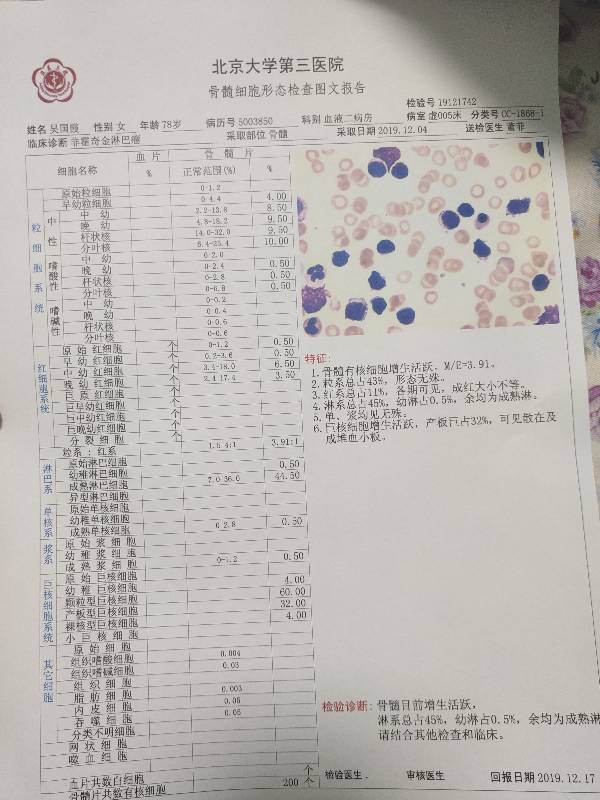 北京大学第三医院
骨髓细胞形态检查图文报告
检验号 19121742
姓名 吴国霞 性别 女 年龄 78岁 病历号 5003850 科别 血液二病房 病室 虚005床 分类号 CC-1868-1
临床诊断 非霍奇金淋巴瘤 采取部位 骨髓 采取日期 2019.12.04 送检医生 董菲
细胞名称 血片 % 骨髓片 正常范围(%) %
粒细胞系统
原始粒细胞 0-1.2
早幼粒细胞 0-4.4 4.00
中性 中幼 2.2-13.8 8.50
晚幼 4.8-18.2 9.50
杆状核 14.0-32.0 9.50
分叶核 6.4-25.4 10.00
嗜酸性 中幼 0-2.0
晚幼 0-2.4 0.50
杆状核 0-2.8 0.50
分叶核 0-6.8 0.50
嗜碱性 中幼 0-0.2
晚幼 0-0.4
杆状核 0-0.6
分叶核 0-0.6
红细胞系统
原始红细胞 个 0-1.2 0.50
早幼红细胞 个 0.2-3.6 0.50
中幼红细胞 个 3.4-18.0 6.50
晚幼红细胞 个 2.4-17.4 3.50
巨原红细胞 个
巨早幼红细胞 个
巨中幼红细胞 个
巨晚幼红细胞 个
分裂细胞
粒系:红系 1.5-4:1 3.91:1
淋巴系
原始淋巴细胞
幼稚淋巴细胞 0.50
成熟淋巴细胞 7.0-36.0 44.50
异型淋巴细胞
单核系
原始单核细胞
幼稚单核细胞
成熟单核细胞 0-2.8 0.50
浆系
原始浆细胞
幼稚浆细胞
成熟浆细胞 0-1.2 0.50
巨核细胞系统
原始巨核细胞
幼稚巨核细胞 4.00
颗粒型巨核细胞 60.00
产板型巨核细胞 32.00
裸核型巨核细胞 4.00
小巨核细胞
其它细胞
原始细胞
组织嗜酸细胞 0.004
组织嗜碱细胞 0.03
组织细胞
脂肪细胞 0.003
内皮细胞 0.05
吞噬细胞 0.05
分类不明细胞
网状细胞
吸血细胞
血片共数白细胞 个
骨髓片共数有核细胞 200 个
特征:
1.骨髓有核细胞增生活跃。M/E=3.91。
2.粒系总占43%,形态无殊。
3.红系总占11%,各期可见,成红大小不等。
4.淋系总占45%,幼淋占0.5%,余均为成熟淋。
5.单、浆均见无殊。
6.巨核细胞增生活跃,产板巨占32%,可见散在及
成堆血小板。
检验诊断:骨髓目前增生活跃,
淋系总占45%,幼淋占0.5%,余均为成熟淋
请结合其他检查和临床。
检验医生. 审核医生 回报日期 2019.12.17